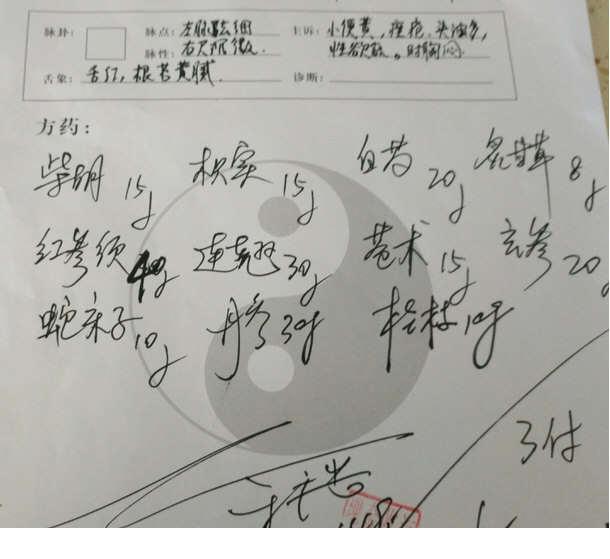 脉卦: 脉点: 左脉弦细 主诉: 小便黄,痤疮,头油多,
脉性: 右尺沉微 性欲低。时胸闷
舌象: 舌红,根苔黄腻 诊断:
方药:
柴胡 15g 枳实 15g 白芍 20g 炙甘草 8g
红参须 10g 连翘 30g 苍术 15g 玄参 20g
蛇床子 10g 丹参 30g 桂枝 10g
3付